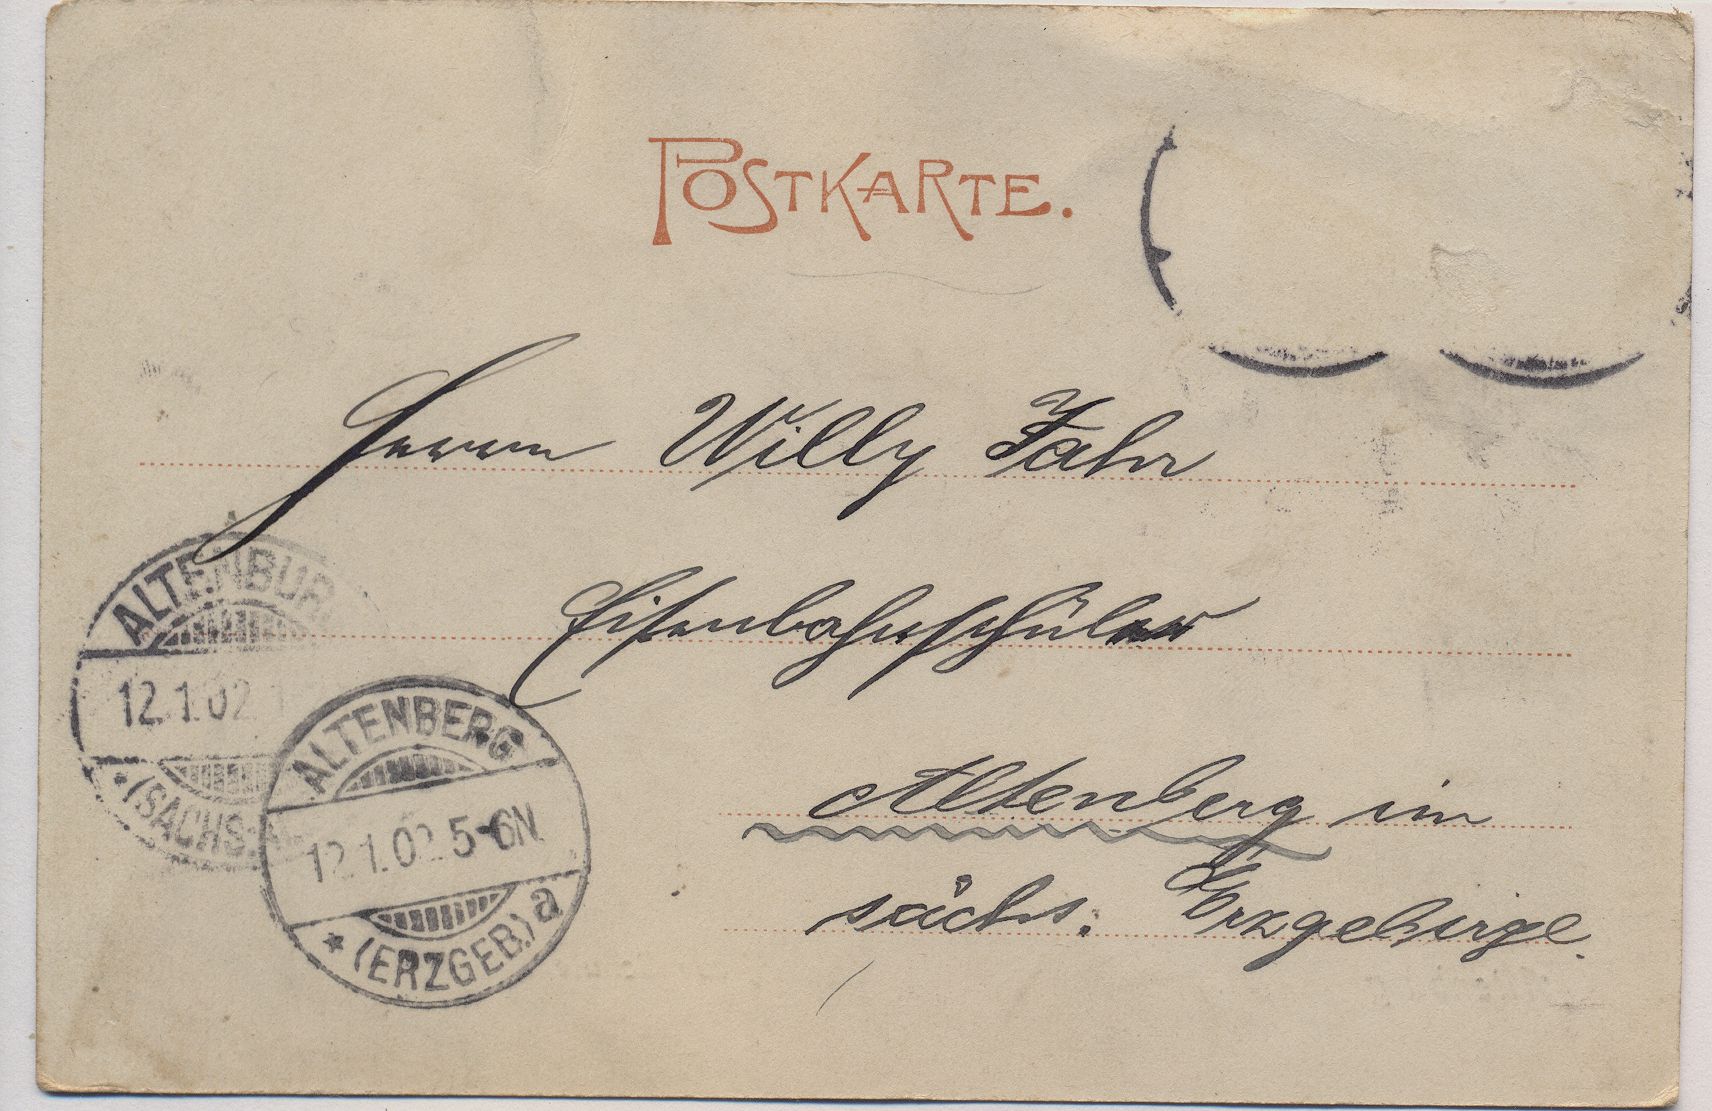 POSTKARTE.
Herrn Willy Jahr
Eisenbahnschüler
Altenberg im
sächs. Erzgebirge.
ALTENBUR
12.1.02 1
*(SACHS.-AL
ALTENBERG
12.1.02 5-6N
* (ERZGEB.) a